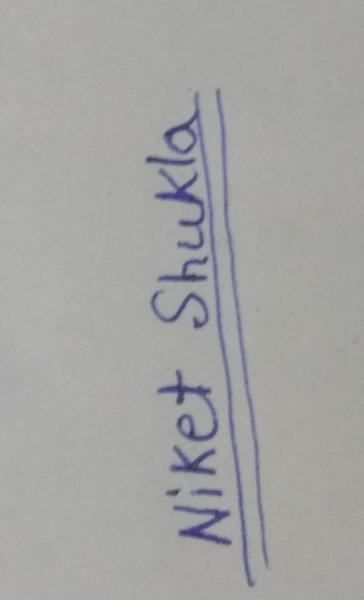 Niket Shukla